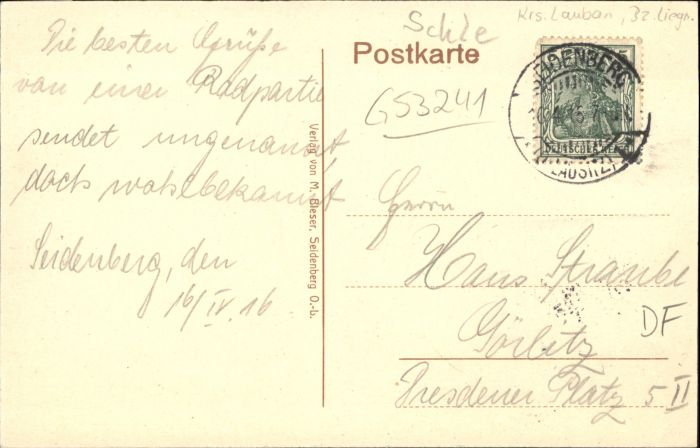 Krs. Lauban, Bz. Liegn.
Schle
Postkarte
GS3241
SEIDENBERG
(LAUSITZ)
DEUTSCHES REICH
Die besten Grüße
von einer Radpartie
sendet ungenannt,
doch wohlbekannt
Seidenberg, den
16/IV. 16
Verlag von M. Bieser, Seidenberg O.-L.
Herrn
Hans Straube
Görlitz
DF
Dresdener Platz 5 II